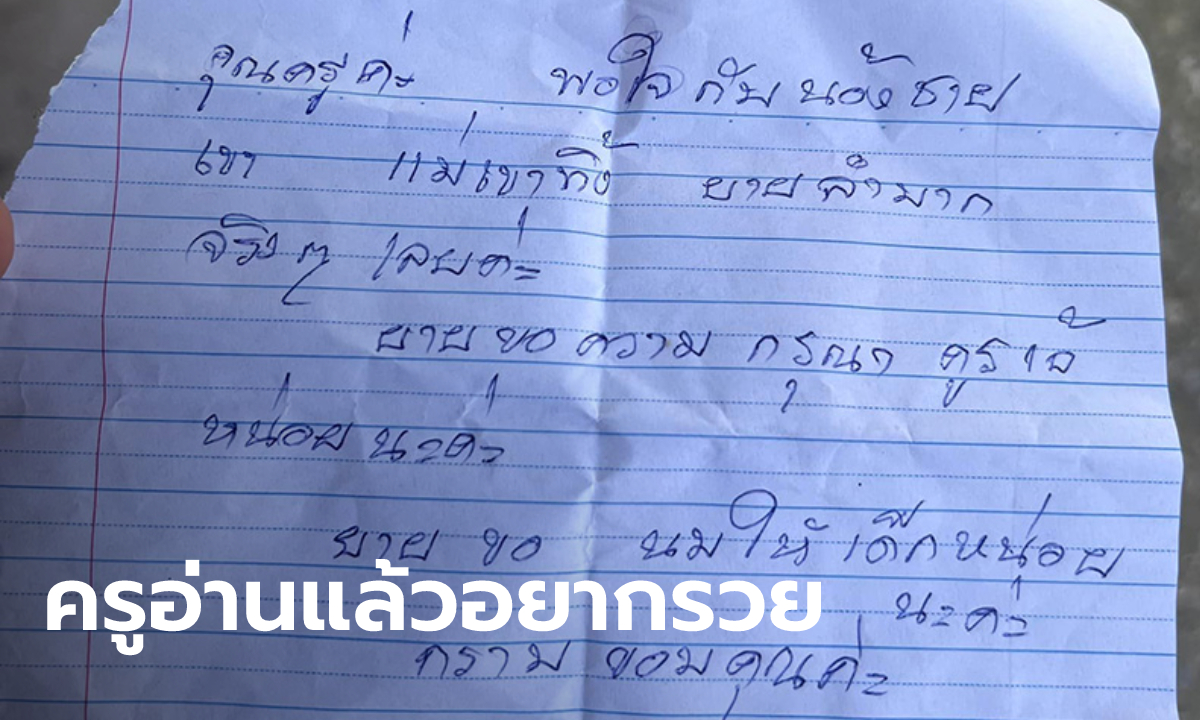 คุณครูค่ะ พอใจกับน้องชาย
เขา แม่เขาทิ้ง ยายลำมาก
จริงๆ เลยค่ะ
ยายขอความกรุณา คูรเจ้
หน่อยนะค่ะ
ยาย ขอ นมให้เด็กหน่อย
นะค่ะ
กราบ ขอบคุณค่ะ
ครูอ่านแล้วอยากรวย